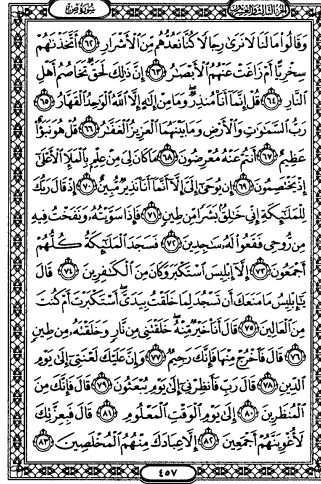 سُورَةُ صٓ
الجزء الثالث والعشرون
وَقَالُوا۟ مَا لَنَا لَا نَرَىٰ رِجَالًا كُنَّا نَعُدُّهُم مِّنَ ٱلْأَشْرَارِ ٦٢ أَتَّخَذْنَٰهُمْ
سِخْرِيًّا أَمْ زَاغَتْ عَنْهُمُ ٱلْأَبْصَٰرُ ٦٣ إِنَّ ذَٰلِكَ لَحَقٌّ تَخَاصُمُ أَهْلِ
ٱلنَّارِ ٦٤ قُلْ إِنَّمَآ أَنَا۠ مُنذِرٌ وَمَا مِنْ إِلَٰهٍ إِلَّا ٱللَّهُ ٱلْوَٰحِدُ ٱلْقَهَّارُ ٦٥
رَبُّ ٱلسَّمَٰوَٰتِ وَٱلْأَرْضِ وَمَا بَيْنَهُمَا ٱلْعَزِيزُ ٱلْغَفَّٰرُ ٦٦ قُلْ هُوَ نَبَؤٌا۟
عَظِيمٌ ٦٧ أَنتُمْ عَنْهُ مُعْرِضُونَ ٦٨ مَا كَانَ لِىَ مِنْ عِلْمٍۭ بِٱلْمَلَإِ ٱلْأَعْلَىٰٓ
إِذْ يَخْتَصِمُونَ ٦٩ إِن يُوحَىٰٓ إِلَىَّ إِلَّآ أَنَّمَآ أَنَا۠ نَذِيرٌ مُّبِينٌ ٧٠ إِذْ قَالَ رَبُّكَ
لِلْمَلَٰٓئِكَةِ إِنِّى خَٰلِقٌۢ بَشَرًا مِّن طِينٍ ٧١ فَإِذَا سَوَّيْتُهُۥ وَنَفَخْتُ فِيهِ
مِن رُّوحِى فَقَعُوا۟ لَهُۥ سَٰجِدِينَ ٧٢ فَسَجَدَ ٱلْمَلَٰٓئِكَةُ كُلُّهُمْ
أَجْمَعُونَ ٧٣ إِلَّآ إِبْلِيسَ ٱسْتَكْبَرَ وَكَانَ مِنَ ٱلْكَٰفِرِينَ ٧٤ قَالَ
يَٰٓإِبْلِيسُ مَا مَنَعَكَ أَن تَسْجُدَ لِمَا خَلَقْتُ بِيَدَىَّ أَسْتَكْبَرْتَ أَمْ كُنتَ
مِنَ ٱلْعَالِينَ ٧٥ قَالَ أَنَا۠ خَيْرٌ مِّنْهُ خَلَقْتَنِى مِن نَّارٍ وَخَلَقْتَهُۥ مِن طِينٍ
٧٦ قَالَ فَٱخْرُجْ مِنْهَا فَإِنَّكَ رَجِيمٌ ٧٧ وَإِنَّ عَلَيْكَ لَعْنَتِىٓ إِلَىٰ يَوْمِ
ٱلدِّينِ ٧٨ قَالَ رَبِّ فَأَنظِرْنِىٓ إِلَىٰ يَوْمِ يُبْعَثُونَ ٧٩ قَالَ فَإِنَّكَ مِنَ
ٱلْمُنظَرِينَ ٨٠ إِلَىٰ يَوْمِ ٱلْوَقْتِ ٱلْمَعْلُومِ ٨١ قَالَ فَبِعِزَّتِكَ
لَأُغْوِيَنَّهُمْ أَجْمَعِينَ ٨٢ إِلَّا عِبَادَكَ مِنْهُمُ ٱلْمُخْلَصِينَ ٨٣
٤٥٧